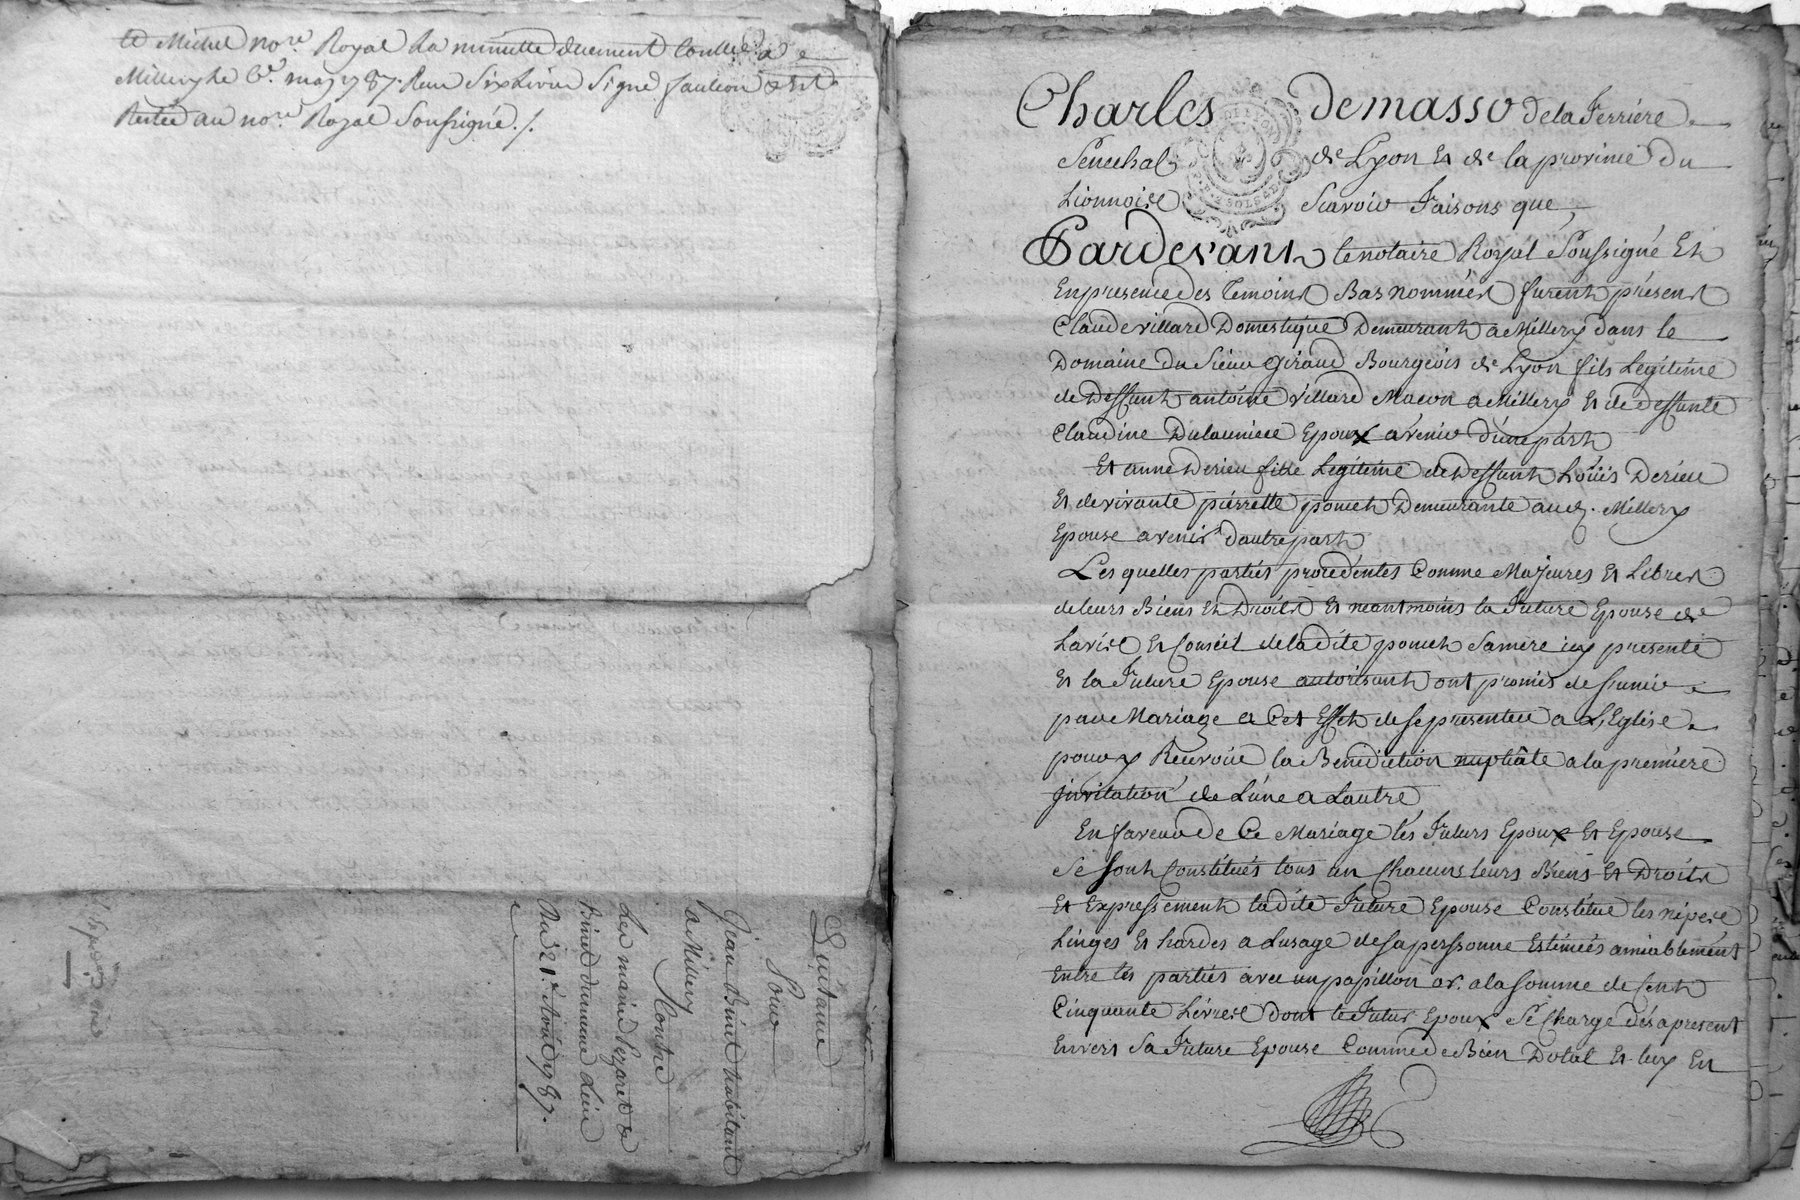 et Michel no.re Royal la minutte duement Conllée a
Millery le 6.e may 1787. Reçu Six Livres Signé faulcon & est
Restée au no.re Royal Soussigné ./.
Quittance
Pour
Jean Binet habitant
a Millery
Contre
Les mariés Pezaret &
Binet dumeme Lieu
Du 21.e Avril 1787.
Charles demasso dela Ferriére
Senechal de Lyon Et de la province du
Lionnois Scavoir Faisons que,
Pardevant le notaire Royal Soussigné Et
En presence des temoins Bas nommées furent présent
Claude villard Domestique Demeurant a Millery dans le
Domaine du Sieur Giraud Bourgeois de Lyon fils Legitime
de Deffunt antoine villard Macon a Millery Et de deffunte
Claudine Dulauniere Epoux avenir d'unepart
Et anne Derieu fille Legitime de Deffunt Loüis Derieu
Et de vivante pierrette ponch Demeurante aud. Millery
Epouse avenir dautre part
Les quelles parties procedentes Comme Majeures Et Libres
deleurs Biens Et Droits Et neantmoins la Future Epouse de
Lavis Et Conseil deladite ponch Samere icy presente
Et la Future Epouse autorisant ont promis de S'unir
par Mariage a Cet Effet de Sepresenter a L'Eglise
pour y Recevoir la Benediction nuptiâle ala premiére
jnvitation de L'une a Lautre
En faveur de Ce Mariage les Futurs Epoux Et Epouse
Se Sont Constitués tous un Chacuns leurs Biens Et Droits
Et Expressement ladite Future Epouse Constitue les nipes
Linges Et hardes a Lusage desapersonne Estimées amiablement
Entre les parties avec un papillon or. ala Somme de Cent
Cinquante Livres dont le Futur Epoux Se Charge dès apresent
Envers Sa Future Epouse Comme de Bien Dotal Et luy En